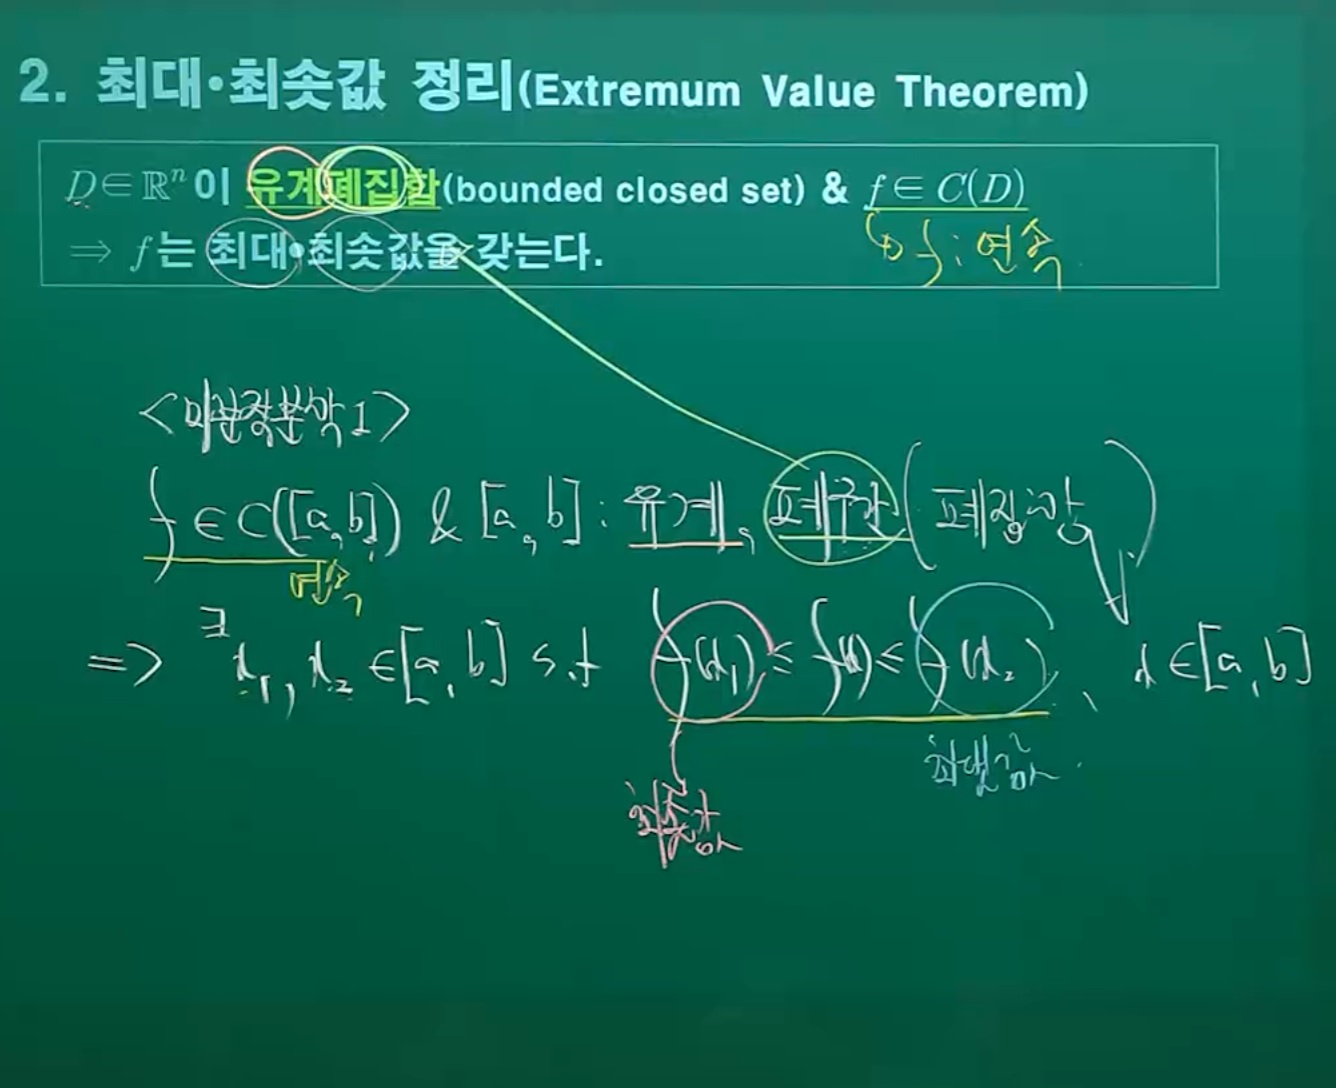 2. 최대·최솟값 정리(Extremum Value Theorem)
D∈ℝⁿ이 유계폐집합(bounded closed set) & f∈C(D)
⇒ f는 최대·최솟값을 갖는다.
↳ f : 연속
<미분적분학1>
f ∈ C([a, b]) & [a, b] : 유계, 폐구간 (폐집합)
연속
=> ∃x₁, x₂ ∈ [a, b] s.t f(x₁) ≤ f(x) ≤ f(x₂), x ∈ [a, b]
최댓값
최솟값